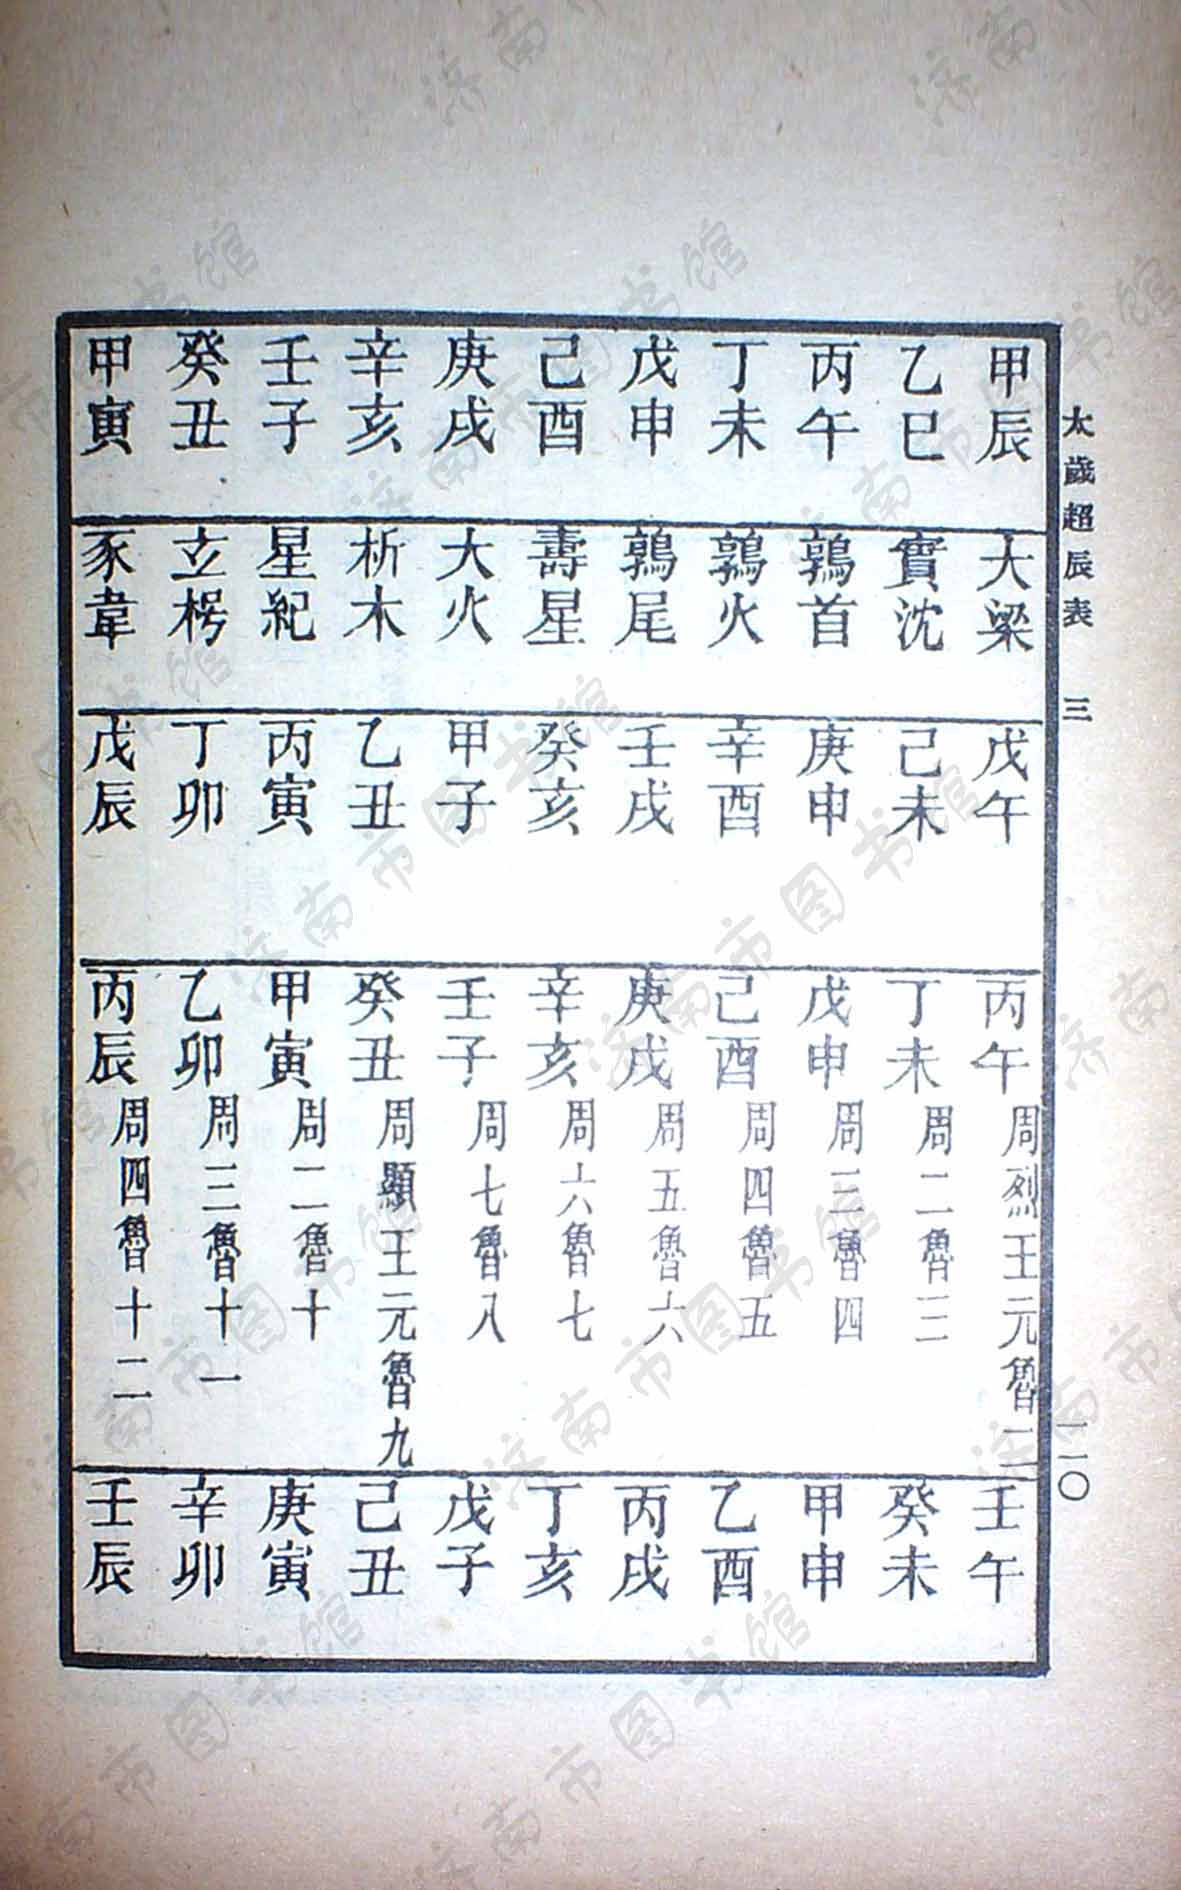 太歲超辰表 三 一一〇
甲辰 大梁 戊午 丙午 周烈王元魯二 壬午
乙巳 實沈 己未 丁未 周二魯三 癸未
丙午 鶉首 庚申 戊申 周三魯四 甲申
丁未 鶉火 辛酉 己酉 周四魯五 乙酉
戊申 鶉尾 壬戌 庚戌 周五魯六 丙戌
己酉 壽星 癸亥 辛亥 周六魯七 丁亥
庚戌 大火 甲子 壬子 周七魯八 戊子
辛亥 析木 乙丑 癸丑 周顯王元魯九 己丑
壬子 星紀 丙寅 甲寅 周二魯十 庚寅
癸丑 立枵 丁卯 乙卯 周三魯十一 辛卯
甲寅 豕韋 戊辰 丙辰 周四魯十二 壬辰
济南市图书馆